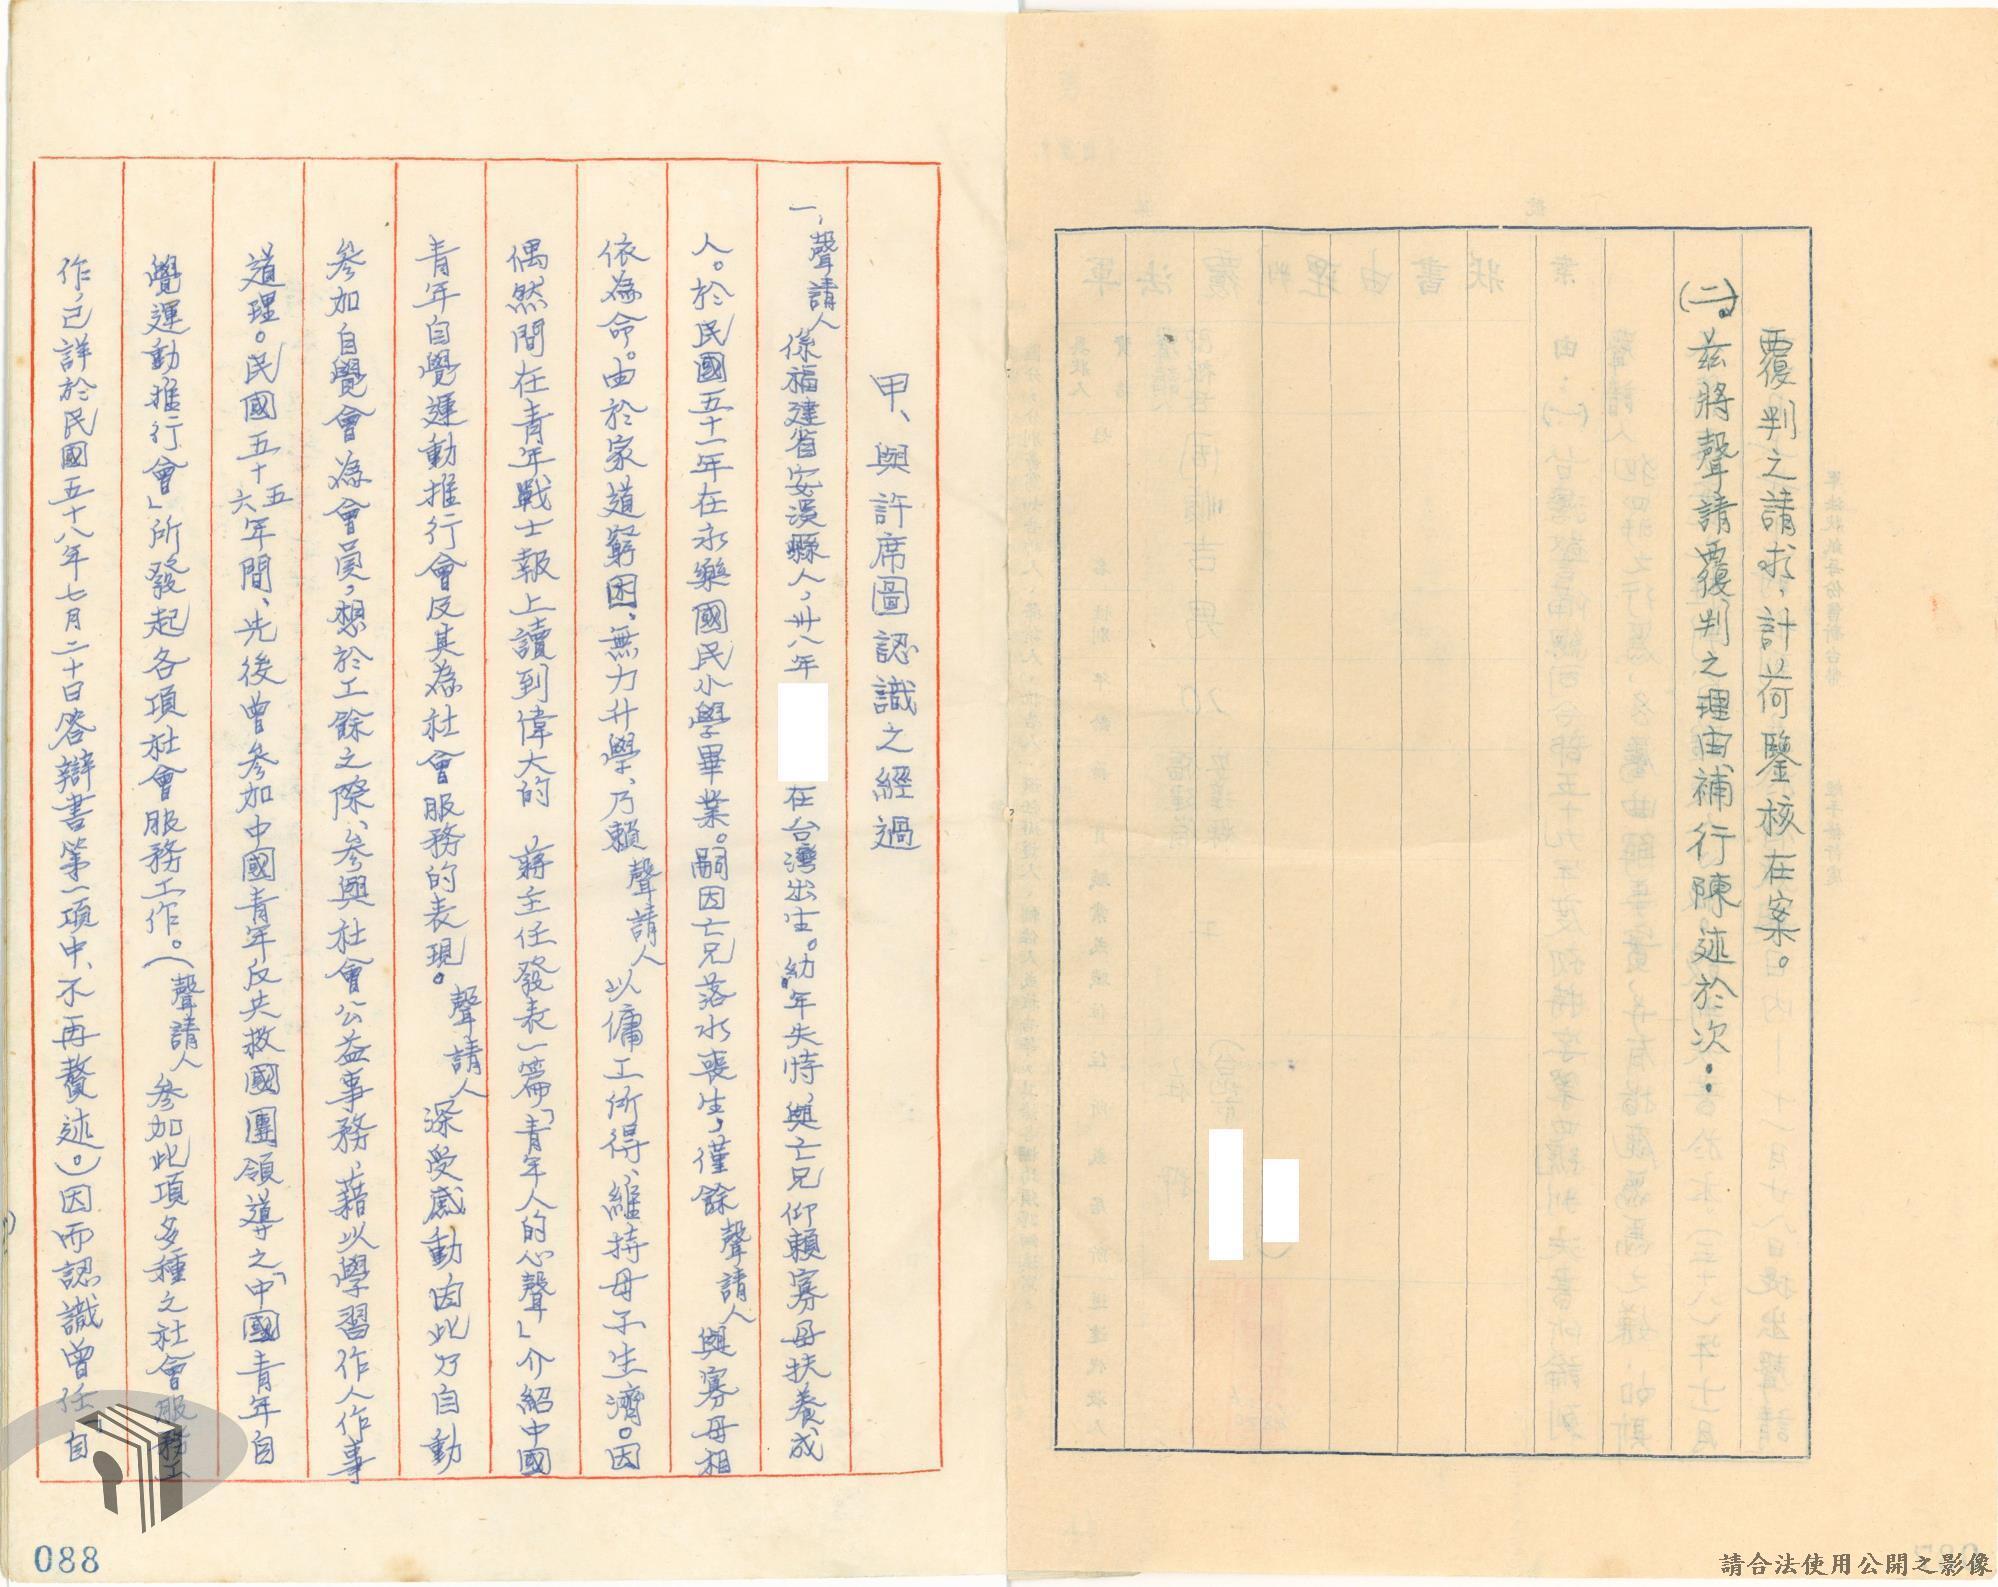 覆判之請求，計荷鑒核在案。
(二)茲將聲請覆判之理由，補行陳述於次：
甲、與許席圖認識之經過
一、聲請人係福建省安溪縣人，卅八年在台灣出生。幼年失恃，與亡兄仰賴寡母扶養成
人。於民國五十一年在永樂國民小學畢業。嗣因亡兄落水喪生，僅餘聲請人與寡母相
依為命。由於家道窮困，無力升學，乃賴聲請人以傭工所得，維持母子生濟。因
偶然間在青年戰士報上讀到偉大的 蔣主任發表一篇「青年人的心聲」介紹中國
青年自覺運動推行會及其為社會服務的表現。聲請人深受感動因此乃自動
參加自覺會為會員，想於工餘之際、參與社會公益事務，藉以學習作人作事
道理。民國五十五六年間、先後曾參加中國青年反共救國團領導之「中國青年自
覺運動推行會」所發起各項社會服務工作。（聲請人參加此項多種之社會服務工
作，已詳於民國五十八年七月二十日答辯書第一項中、不再贅述。）因而認識曾任「自
088
請合法使用公開之影像